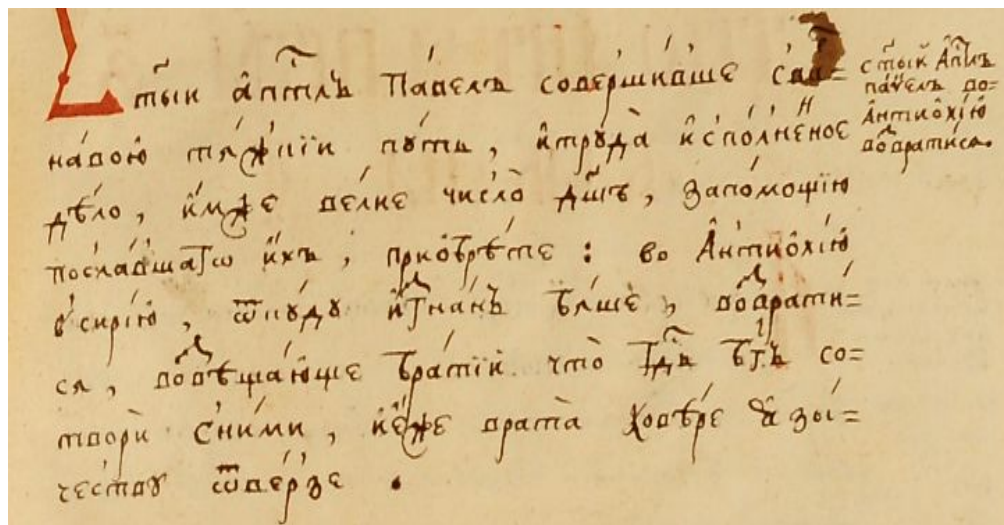 стый а҆пⷭ҇тлъ Па́велъ соверши́вше сва́р=
на́вою тѧ́жкїи пꙋть, и҆ трꙋда̀ и҆спо́лненое
дѣ́ло, и҆́мже ве́лие число̀ дш҃ъ, за по́мощїю
посла́вшагѡ и҆́хъ, приѡбрѣ́те: во А҆нтиѡхі́ю
в̾сирі́ю, ѿнꙋ́дꙋ и҆згна́нъ бѧ́ше, возврати́=
сѧ, возвѣща́юще бра́тїи что̀ гдⷭ҇ь бг҃ъ со=
творѝ с̾ни́ми, и҆ є҆́же врата̀ ко вѣ́ре ꙗ҆зы́=
честву ѿве́рзе.
стый А҆пⷭ҇лъ
па́велъ во=
А҆нтиѡхі́ю
возврати́сѧ.